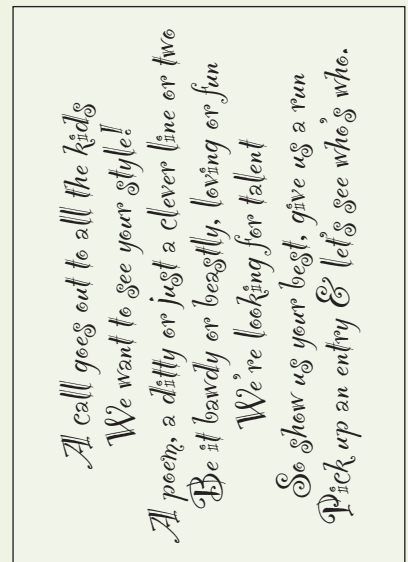 A call goes out to all the kids
We want to see your style!
A poem, a ditty or just a clever line or two
Be it bawdy or beastly, loving or fun
We're looking for talent
So show us your best, give us a run
Pick up an entry & let's see who's who.